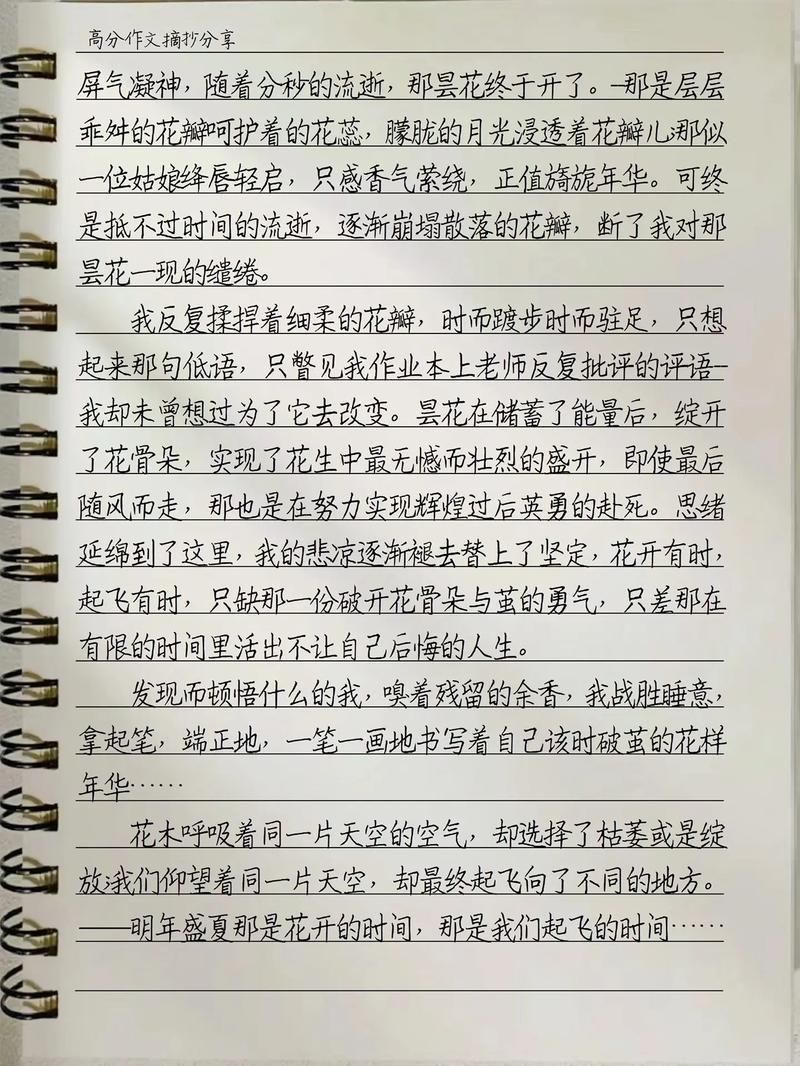 高分作文摘抄分享
屏气凝神，随着分秒的流逝，那昙花终于开了。那是层层
乖舛的花瓣呵护着的花蕊，朦胧的月光浸透着花瓣儿；那似
一位姑娘绛唇轻启，只感香气萦绕，正值旖旎年华。可终
是抵不过时间的流逝，逐渐崩塌散落的花瓣，断了我对那
昙花一现的缱绻。
我反复揉捍着细柔的花瓣，时而踱步时而驻足，只想
起来那句低语，只瞥见我作业本上老师反复批评的评语—
我却未曾想过为了它去改变。昙花在储蓄了能量后，绽开
了花骨朵，实现了花生中最无憾而壮烈的盛开，即使最后
随风而走，那也是在努力实现辉煌过后英勇的赴死。思绪
延绵到了这里，我的悲凉逐渐褪去替上了坚定，花开有时，
起飞有时，只缺那一份破开花骨朵与茧的勇气，只差那在
有限的时间里活出不让自己后悔的人生。
发现而顿悟什么的我，嗅着残留的余香，我战胜睡意，
拿起笔，端正地，一笔一画地书写着自己该时破茧的花样
年华……
花木呼吸着同一片天空的空气，却选择了枯萎或是绽
放；我们仰望着同一片天空，却最终起飞向了不同的地方。
——明年盛夏那是花开的时间，那是我们起飞的时间……